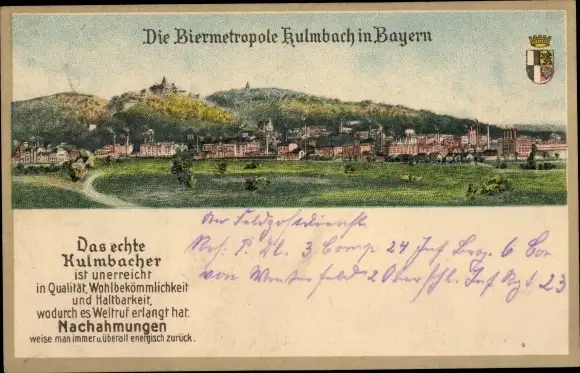 Die Biermetropole Kulmbach in Bayern
Das echte
Kulmbacher
ist unerreicht
in Qualität, Wohlbekömmlichkeit
und Haltbarkeit,
wodurch es Weltruf erlangt hat.
Nachahmungen
weise man immer u. überall energisch zurück.
Res. P. Bt. 3 Comp. 24 Inf Brg. 6 Cor
von Winterfeldt 2 Oberschl. Inf Rgt. 23